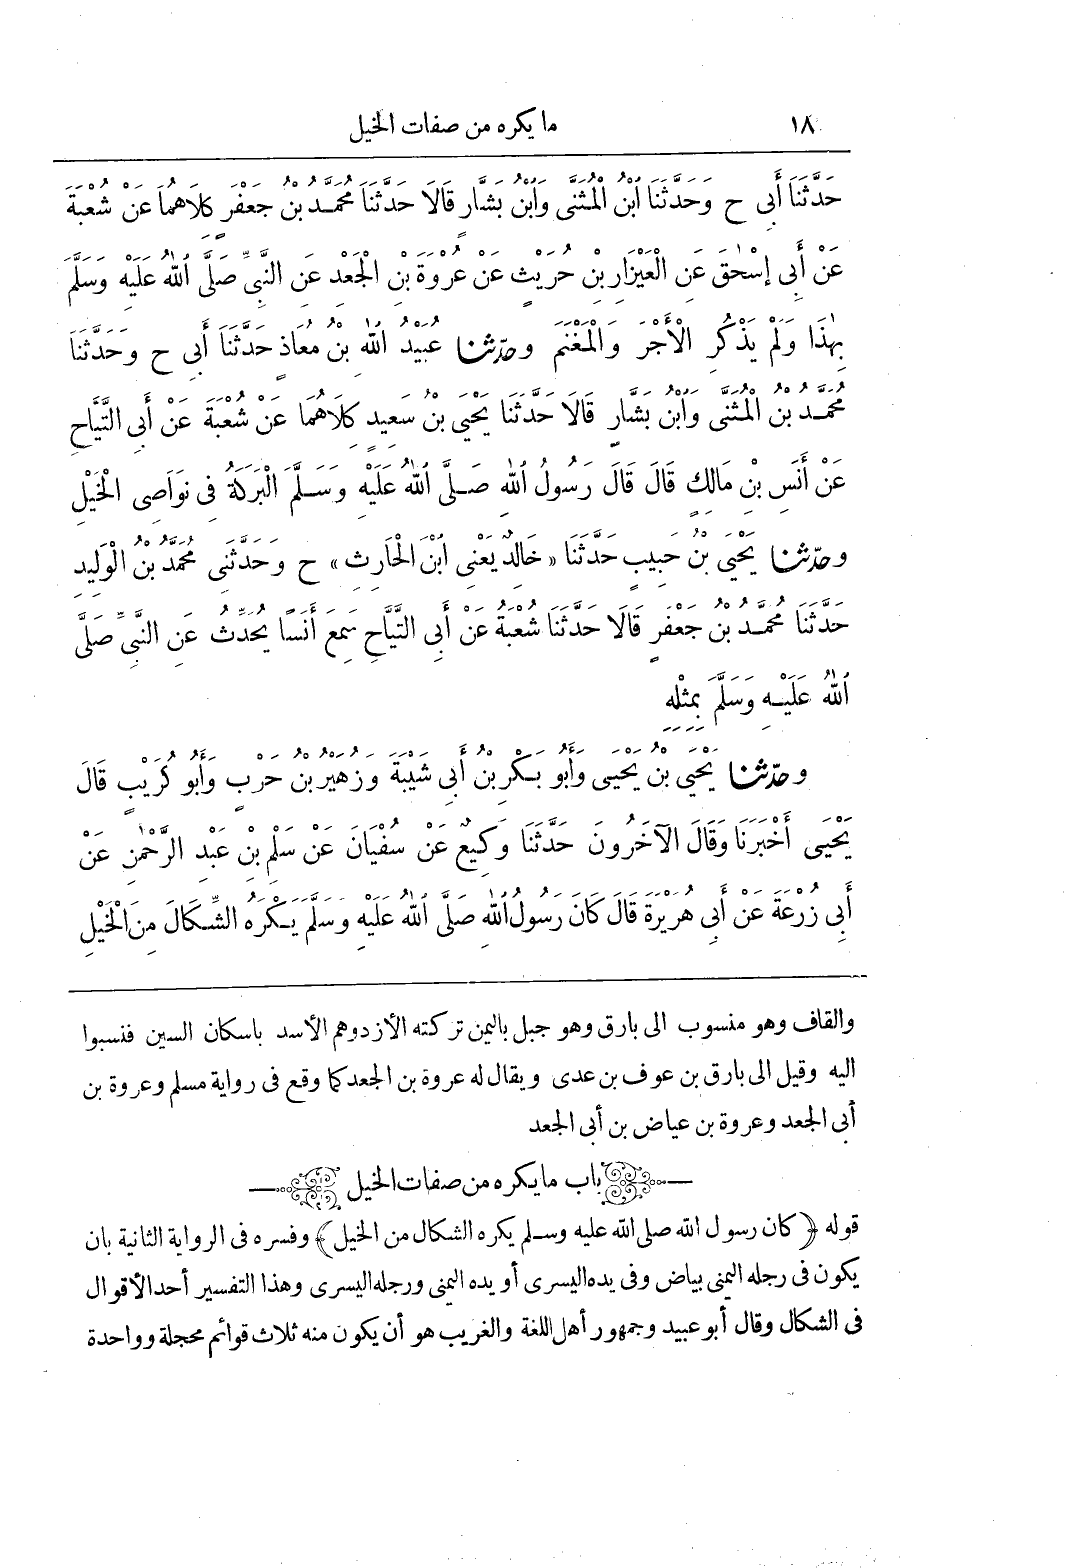 ١٨ ما يكره من صفات الخيل
حَدَّثَنَا أَبِى ح وَحَدَّثَنَا ابْنُ الْمُثَنَّى وَابْنُ بَشَّارٍ قَالَا حَدَّثَنَا مُحَمَّدُ بْنُ جَعْفَرٍ كِلَاهُمَا عَنْ شُعْبَةَ
عَنْ أَبِى إِسْحٰقَ عَنِ الْعَيْزَارِ بْنِ حُرَيْثٍ عَنْ عُرْوَةَ بْنِ الْجَعْدِ عَنِ النَّبِىِّ صَلَّى اللّٰهُ عَلَيْهِ وَسَلَّمَ
بِهٰذَا وَلَمْ يَذْكُرِ الْأَجْرَ وَالْمَغْنَمَ وحدّثنا عُبَيْدُ اللّٰهِ بْنُ مُعَاذٍ حَدَّثَنَا أَبِى ح وَحَدَّثَنَا
مُحَمَّدُ بْنُ الْمُثَنَّى وَابْنُ بَشَّارٍ قَالَا حَدَّثَنَا يَحْيَى بْنُ سَعِيدٍ كِلَاهُمَا عَنْ شُعْبَةَ عَنْ أَبِى التَّيَّاحِ
عَنْ أَنَسِ بْنِ مَالِكٍ قَالَ قَالَ رَسُولُ اللّٰهِ صَلَّى اللّٰهُ عَلَيْهِ وَسَلَّمَ الْبَرَكَةُ فِى نَوَاصِى الْخَيْلِ
وحدّثنا يَحْيَى بْنُ حَبِيبٍ حَدَّثَنَا «خَالِدٌ يَعْنِى ابْنَ الْحَارِثِ» ح وَحَدَّثَنِى مُحَمَّدُ بْنُ الْوَلِيدِ
حَدَّثَنَا مُحَمَّدُ بْنُ جَعْفَرٍ قَالَا حَدَّثَنَا شُعْبَةُ عَنْ أَبِى التَّيَّاحِ سَمِعَ أَنَسًا يُحَدِّثُ عَنِ النَّبِىِّ صَلَّى
اللّٰهُ عَلَيْهِ وَسَلَّمَ بِمِثْلِهِ
وحدّثنا يَحْيَى بْنُ يَحْيَى وَأَبُو بَكْرِ بْنُ أَبِى شَيْبَةَ وَزُهَيْرُ بْنُ حَرْبٍ وَأَبُو كُرَيْبٍ قَالَ
يَحْيَى أَخْبَرَنَا وَقَالَ الْآخَرُونَ حَدَّثَنَا وَكِيعٌ عَنْ سُفْيَانَ عَنْ سَلْمِ بْنِ عَبْدِ الرَّحْمٰنِ عَنْ
أَبِى زُرْعَةَ عَنْ أَبِى هُرَيْرَةَ قَالَ كَانَ رَسُولُ اللّٰهِ صَلَّى اللّٰهُ عَلَيْهِ وَسَلَّمَ يَكْرَهُ الشِّكَالَ مِنَ الْخَيْلِ
والقاف وهو منسوب الى بارق وهو جبل باليمن تركته الأزد وهم الأسد باسكان السين فنسبوا
اليه وقيل الى بارق بن عوف بن عدى ويقال له عروة بن الجعد كما وقع فى رواية مسلم وعروة بن
أبى الجعد وعروة بن عياض بن أبى الجعد
باب ما يكره من صفات الخيل
قوله ﴿كان رسول الله صلى الله عليه وسلم يكره الشكال من الخيل﴾ وفسره فى الرواية الثانية بان
يكون فى رجله اليمنى بياض وفى يده اليسرى أو يده اليمنى ورجله اليسرى وهذا التفسير أحد الأقوال
فى الشكال وقال أبو عبيد وجمهور أهل اللغة والغريب هو أن يكون منه ثلاث قوائم محجلة وواحدة